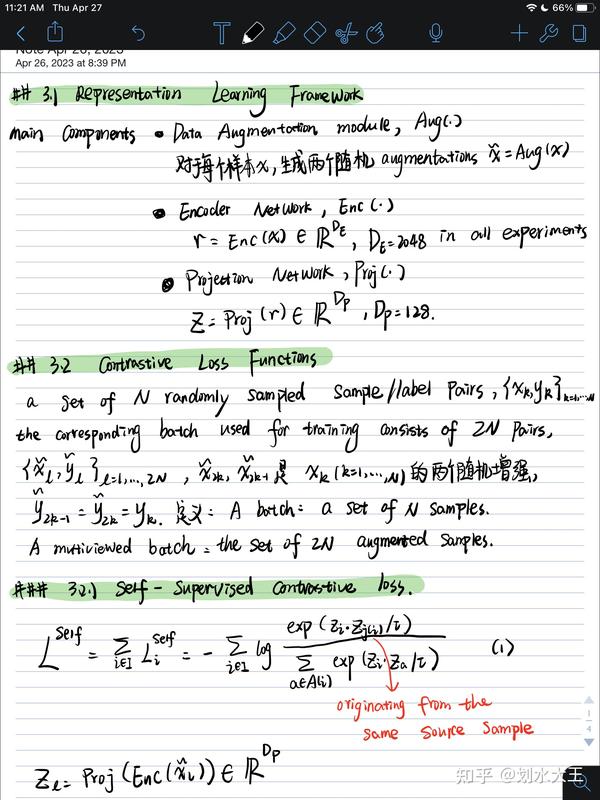 11:21 AM Thu Apr 27
66%
Note Apr 26, 2023
Apr 26, 2023 at 8:39 PM
## 3.1 Representation Learning Framework
main Components • Data Augmentation module, Aug(·)
对于每个样本x,生成两个随机 augmentations x̃=Aug(x)
• Encoder Network, Enc(·)
r = Enc(x) ∈ ℝ^{D_E}, D_E=2048 in all experiments
• Projection Network, Proj(·)
Z = Proj(r) ∈ ℝ^{D_P}, D_P=128.
## 3.2 Contrastive Loss Functions
a set of N randomly sampled sample/label pairs, {x_k,y_k}_{k=1,...,N}
the corresponding batch used for training consists of 2N pairs,
{x̃_l,ỹ_l}_{l=1,...,2N}, x̃_{2k}, x̃_{2k-1} 是 x_k (k=1,...,N)的两个随机增强,
ỹ_{2k-1} = ỹ_{2k} = y_k. 定义: A batch: a set of N samples.
A multiviewed batch: the set of 2N augmented samples.
### 3.2.1 Self-Supervised Contrastive loss.
L^{self} = Σ_{i∈I} L_i^{self} = - Σ_{i∈I} log exp(z_i·z_{j(i)}/τ) / Σ_{a∈A(i)} exp(z_i·z_a/τ) (1)
originating from the
same source sample
Z_l = Proj(Enc(x̃_l)) ∈ ℝ^{D_P}
1
4
知乎 @划水大王